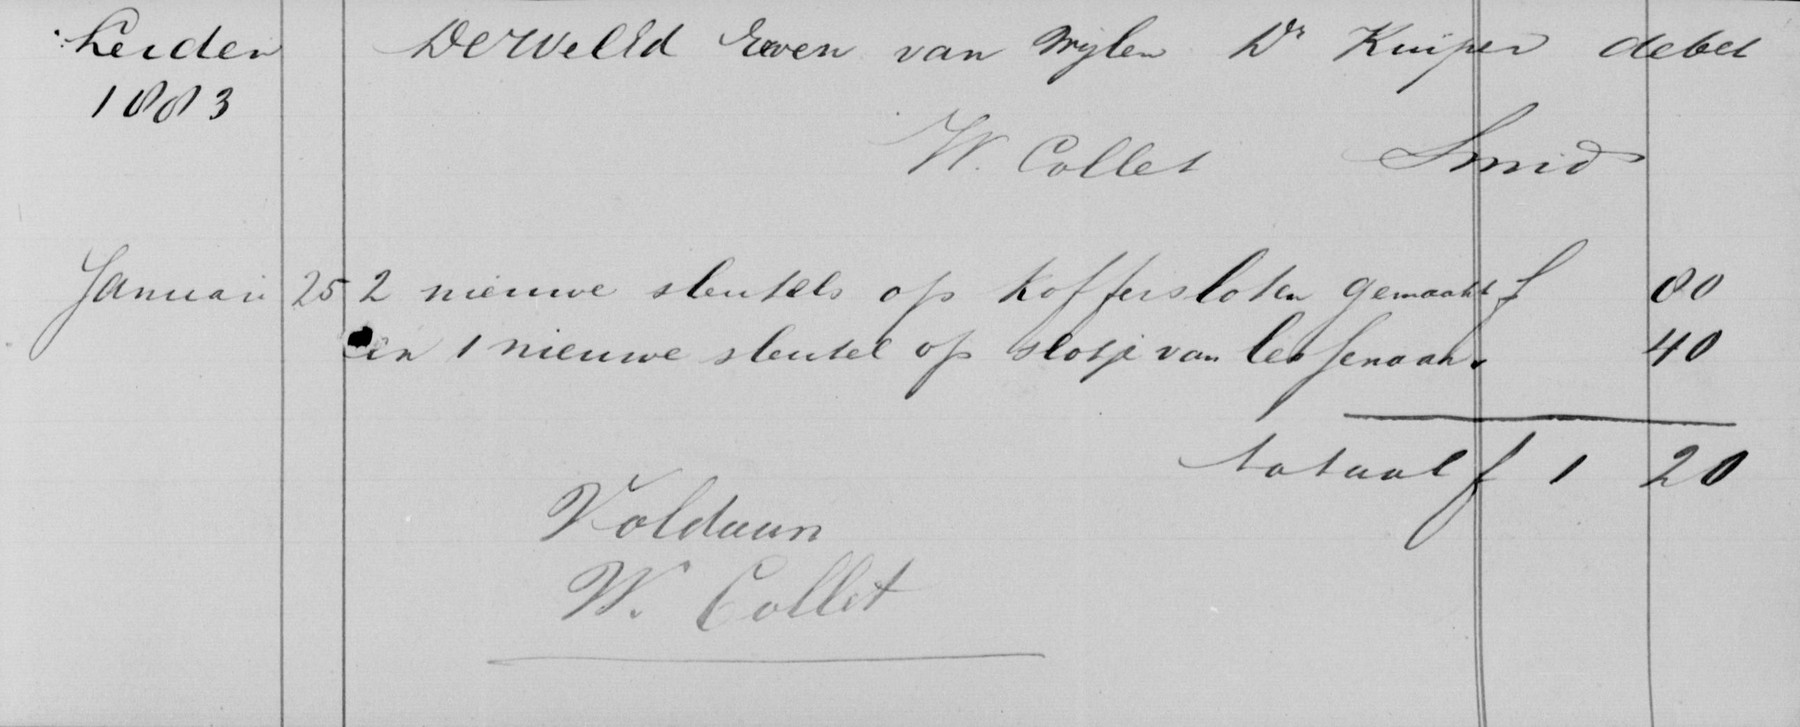 Leiden De WelEd Erven van Wijlen Dr Kuiper debet
1883
W. Collet Smid
Januari 25 2 nieuwe sleutels op koffersloten gemaakt f 80
en 1 nieuwe sleutel op slotje van lessenaar. 40
totaal f 1 20
Voldaan
W. Collet